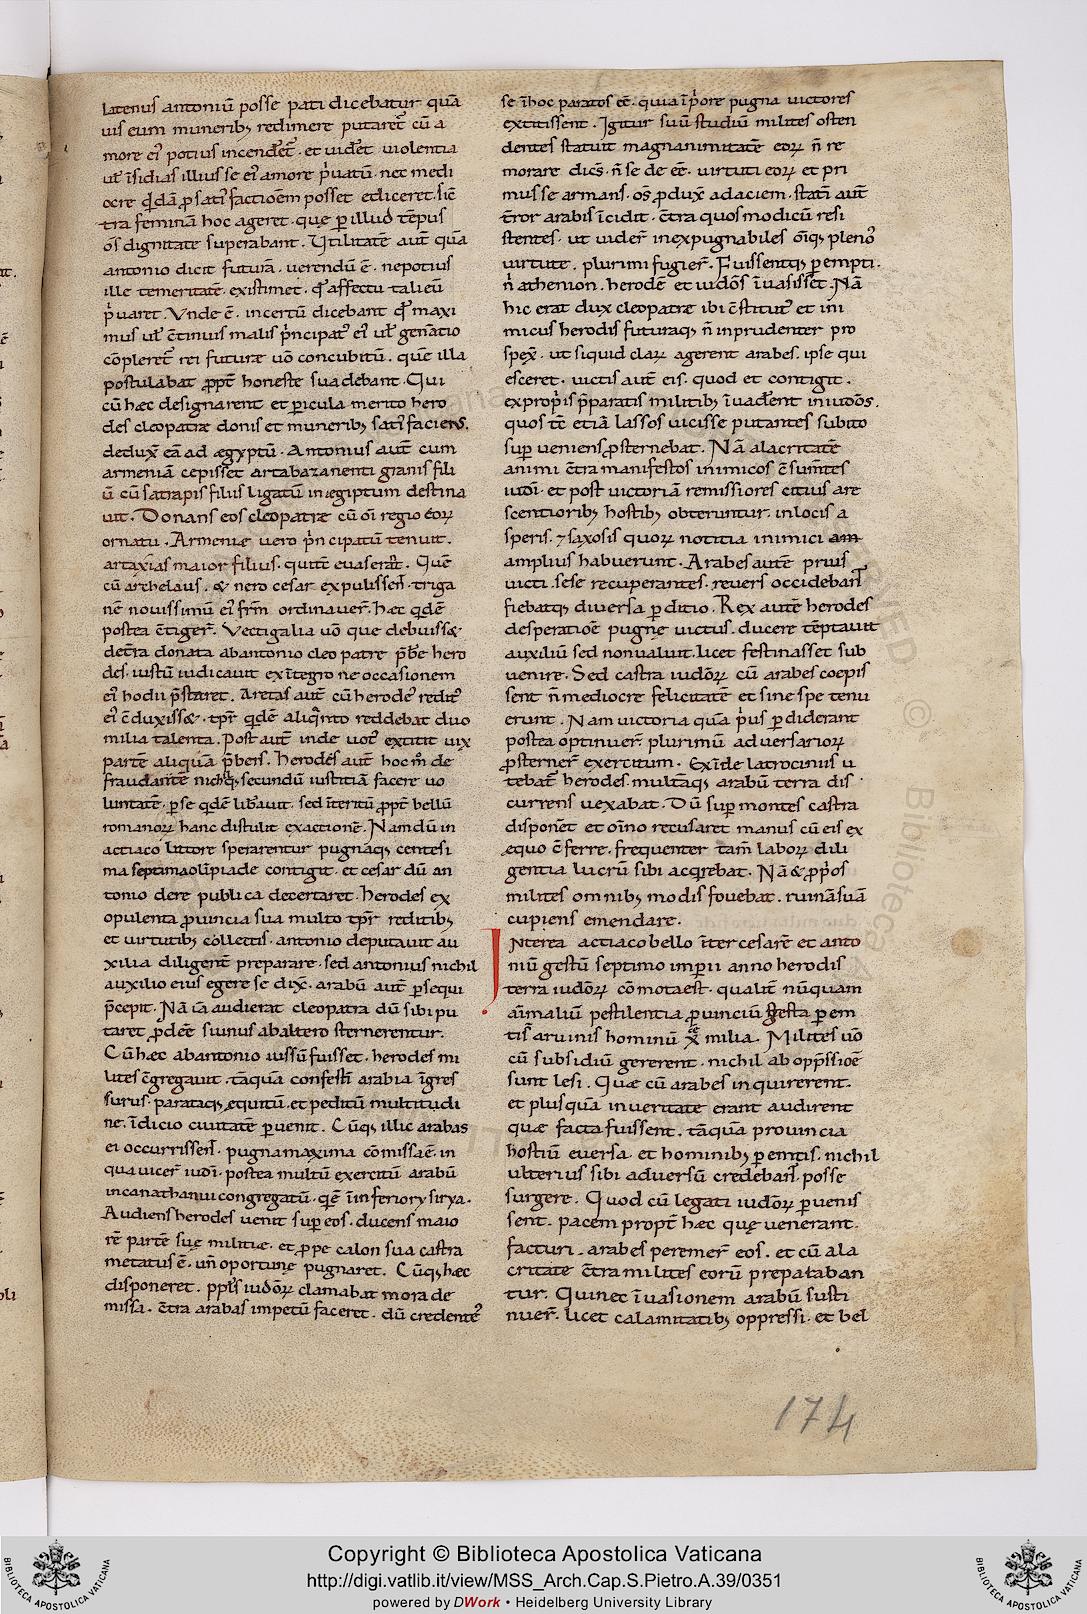 latenus antoniū posse pati dicebatur quā
uis eum muneribꝫ redimere putaret᷑ cū a
more ei᷒ potius incenderet᷑ · et uideret uiolentia
ut᷑ īsidias illius se ei᷒ amore p̓uatū · nec medi
ocre q̓dā ꝓ sati᷒ factioēm posset ediceret · si c̄
tra feminā hoc ageret · quę ꝑ illud tēpus
oēs dignitate superabant · Utilitatē aut̄ quā
antonio dicit futurā · uerendū ē · ne potius
ille temeritatē existimet · q̄ affectu tali eū
p̓uaret · Vnde ē · incertū dicebant q̄ maxi
mus ut᷑ c̄tinuis malis p̓ncipat᷒ ei᷒ ut᷑ gen̄atio
cōpleret᷑ rei futuræ uō concubitū · quē illa
postulabat ꝓpt̄ honeste suadebant · Qui
cū hæc designarent et ꝑicula merito hero
des cleopatræ donis et muneribꝫ sati᷒ faciens,
dedux̄ eā ad ægyptū · Antonius aut̄ cum
armeniā cepisset artabazanenti granis fili
ū cū satrapis filus ligatū in ægiptum destina
uit · Donans eos cleopatræ cū oī regio eoꝝ
ornatu · Armeniæ uero p̓ncipatū tenuit ·
artaxias maior filius · qui tē euaserat᷑ · Quē
cū archelaus · & nero cesar expulissen̄t · triga
nē nouissimū ei᷒ frm̄ ordinauer̄ · hæc q̓dē
postea c̄tiger̄ · Vectigalia uō que debuiss&
dec̄tra donata ab antonio cleopatre p̄bē hero
des · iustū iudicauit ex ītegro ne occasionem
ei᷒ hodii p̄staret · Aretas aut̄ cū herodes redit᷒
ei᷒ c̄duxiss& · tp̄r q̓dē aliq̓nto reddebat duo
milia talenta · Post aut̄ inde uot᷒ extitit uix
partē aliquā p̄bens · Herodes aut̄ hoc m̄ de
fraudantē nichꝫ secundū iustitiā facere uo
luntatē · ꝑse q̓dē lib̄auit · sed īteritū ꝓpt̄ bellū
romanoꝝ hanc distulit exactionē · Nam dū in
actiaco littore sperarentur pugnaqꝫ centesi
ma septima olīpiade contigit · et cesar dū an
tonio dere publica decertaret · herodes ex
opulenta ꝓuincia sua multo tp̄r reditibꝫ
et uirtutibꝫ collectis · antonio deputauit au
xilia diligent̄ preparare · sed antonius nichil
auxilio eius egere se dix̄ · arabū aut̄ ꝑsequi
p̄cepit · Nā iā audierat cleopatra dū sibi pu
taret ꝓdēē si unus ab altero sternerentur ·
Cū hæc ab antonio iussū fuisset · herodes mi
lites c̄gregauit · tāquā confesti arabia īgres
surus · parataqꝫ equitū · et peditū multitudi
ne · īdicio ciuitatē ꝑuenit · Cūqꝫ illic arabas
ei occurrissen̄t · pugna maxima cōmissa ē · in
qua uicer̄ iudi · postea multū exercitū arabū
in canatha n̄ui congregatū · q̄ē ī inferiory sirya ·
Audiens herodes uenit suꝑ eos · ducens maio
rē partē suę militiæ · et ꝓpe calon sua castra
metatus ē · un̄ oportune pugnaret · Cūqꝫ hæc
disponeret · ppl̄s iudōꝝ clamabat mora de
missa · c̄tra arabas impetū faceret · dū credente᷒
se ī hoc paratos eē · quia ī p̓ore pugna uictores
extitissent · Igitur suū studiū milites osten
dentes statuit magnanimitatē eoꝝ n̄ re
morare dics̄ · n̄ se de eē · uirtuti eoꝝ et pri
mus se armans · oēs ꝓdux̄ ad aciem · statī aut̄
t̄ror arabis īcidit · c̄tra quos modicū resi
stentes · ut uider̄ inexpugnabiles oīqꝫ pleno᷒
uirtute · plurimi fugier̄ · Fuissentqꝫ ꝑempti ·
n̄ athenion · herodē et iudōs īuasisset · Nā
hic erat dux cleopatræ ibi c̄stitut᷒ et ini
micus herodis futuraqꝫ n̄ inprudenter pro
spex̄ · ut siquid claꝝ agerent arabes · ipse qui
esceret · uictis aut̄ eis · quod et contigit ·
ex prop̓is p̄paratis militibꝫ īuadent in iudōs ·
quos tc̄ etiā lassos uicisse putantes subito
suꝑ ueniens ꝓsternebat · Nā alacritatē
animi c̄tra manifestos inimicos c̄sum̄tes
iudi · et post uictoriā remissiores citius are
scentioribꝫ hostibꝫ obteruntur · in locis a
speris · ⁊ saxosis quoꝝ notitia inimici am
amplius habuerunt · Arabes autē prius
uicti sese recuperantes · reuers̄ occideban̄t
fiebatqꝫ diuersa ꝑditio · Rex autē herodes
desperatioē pugnę uictus · ducere tēptauit
auxiliū sed non ualuit · licet festinasset sub
uenire · Sed castra iudōꝝ cū arabes coepis
sent n̄ mediocre felicitatē et sine spe tenu
erunt · Nam uictoria quā p̓us ꝑdiderant
postea optinuer̄ plurimū aduersarioꝝ
ꝓsterner̄ exercitum · Exīde latrociniis u
tebat᷑ herodes · multāqꝫ arabū terra dis
currens uexabat · Dū suꝑ montes castra
disponēt et oīno recusaret manus cū eis ex
equo c̄ferre · frequenter tam̄ laboꝝ dili
gentia lucrū sibi acq̓rebat · Nā & ꝓp̓os
milites omnibꝫ modis fouebat · ruinā suā
cupiens emendare ·
INterea actiaco bello īter cesarē et anto
niū gestū septimo imperii anno herodis
terra iudōꝝ cōmota est · qualit̄ nūquam
aīmaliū pestilentia ꝓuinciū gesta ꝑ em
tis᷑ aruinis hominū x̄ milia · Milites uō
cū subsidiū gererent · nichil ab opp̄ssioē
sunt lesi · Quæ cū arabes inquirerent ·
et plus quā in ueritate erant audirent
quæ facta fuissent · tāquā prouincia
hostiū euersa · et hominibꝫ ꝑemtis · nichil
ulterius sibi aduersū credeban̄t posse
surgere · Quod cū legati iudōꝝ ꝑuenis
sent · pacem propt̄ hæc quę uenerant ·
facturi · arabes peremer̄ eos · et cū ala
critate c̄tra milites eorū preparaban
tur · Qui nec īuasionem arabū susti
nuer̄ · licet calamitatibꝫ oppressi · et bel
174
Copyright © Biblioteca Apostolica Vaticana
http://digi.vatlib.it/view/MSS_Arch.Cap.S.Pietro.A.39/0351
powered by DWork • Heidelberg University Library